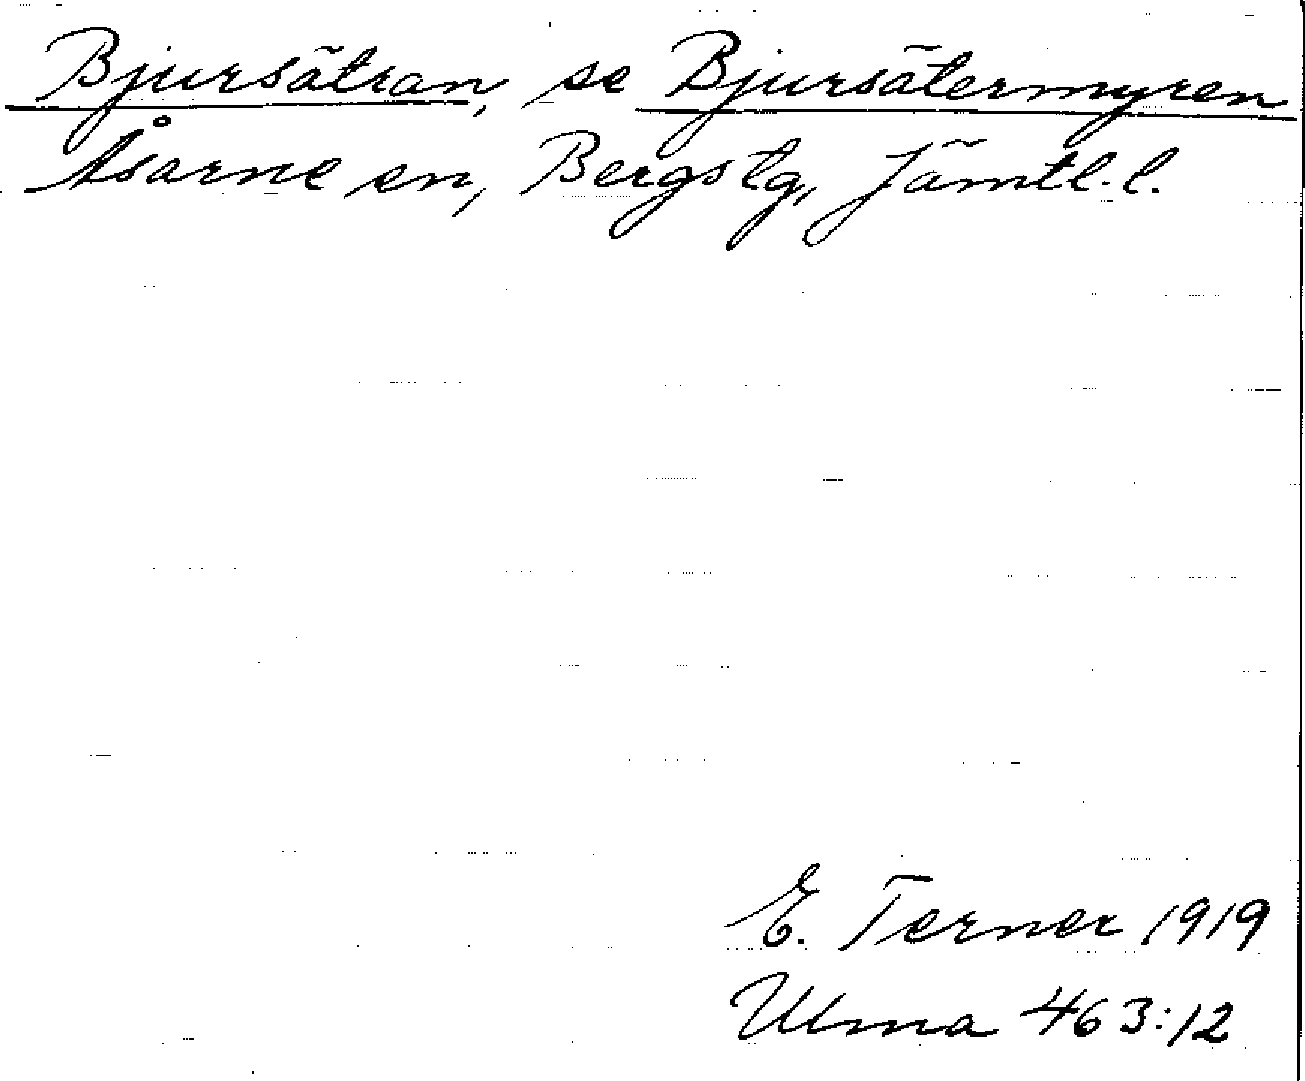 Bjursätran, se Bjursätermyren
Åsarne sn, Bergs tg, Jämtl. l.
E. Terner 1919
Ulma 463:12